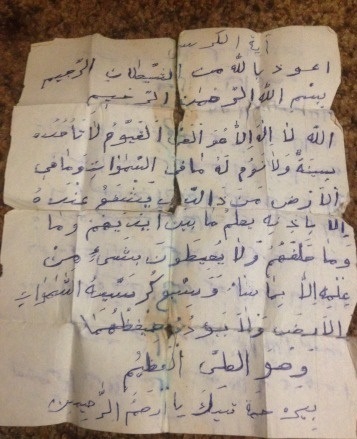 آية الكرسي
اعوذ بالله من الشيطان الرحيم
بسم الله الرحمن الرحيم
الله لا إله الا هو الحي القيوم لا تأخذه
سنة ولا نوم له ما في السموات وما في
الأرض من ذا الذي يشفع عنده
إلا بإذنه يعلم ما بين أيديهم وما
وما خلفهم ولا يحيطون بشيء من
علمه إلا بما شاء وسع كرسيه السموات
الأرض ولا يؤده حفظهما
وهو العلي العظيم
يا ارحم الرحمين